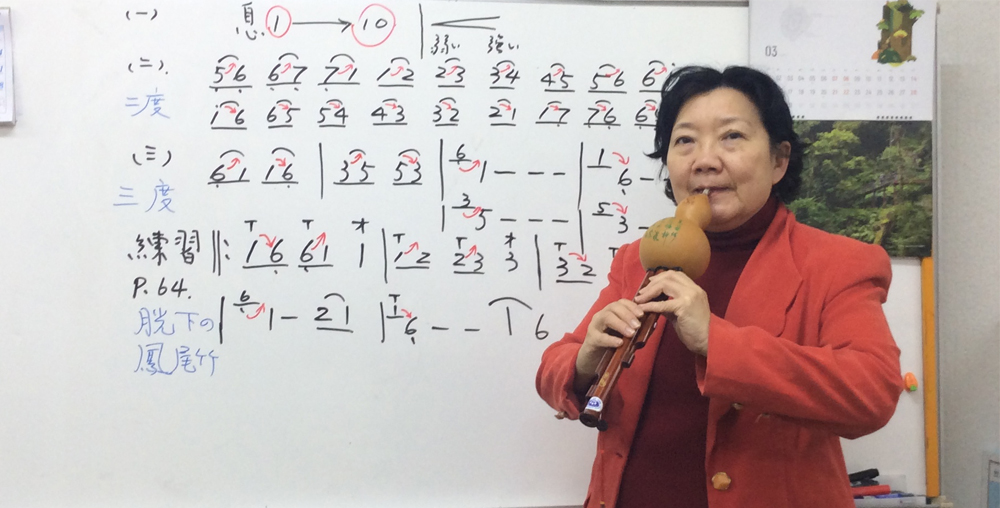 (一) 息 1 → 10 | 弱い 強い
(二). 56 67 71 12 23 34 45 56 6i
二度 i6 65 54 43 32 21 17 76
(三) 61 16 | 35 53 | 6 1 - - - | 1 6 -
三度 | 3 5 - - - | 5 3 -
練習 ‖: T 16 T 61 1 | T 12 T 23 3 | T 32 T
P.64. | 6 1 - 21 | T 1 6 - - 6
胱下の
鳳尾竹
03